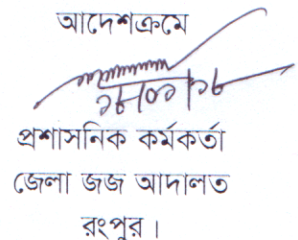 আদেশক্রমে
প্রশাসনিক কর্মকর্তা
জেলা জজ আদালত
রংপুর।